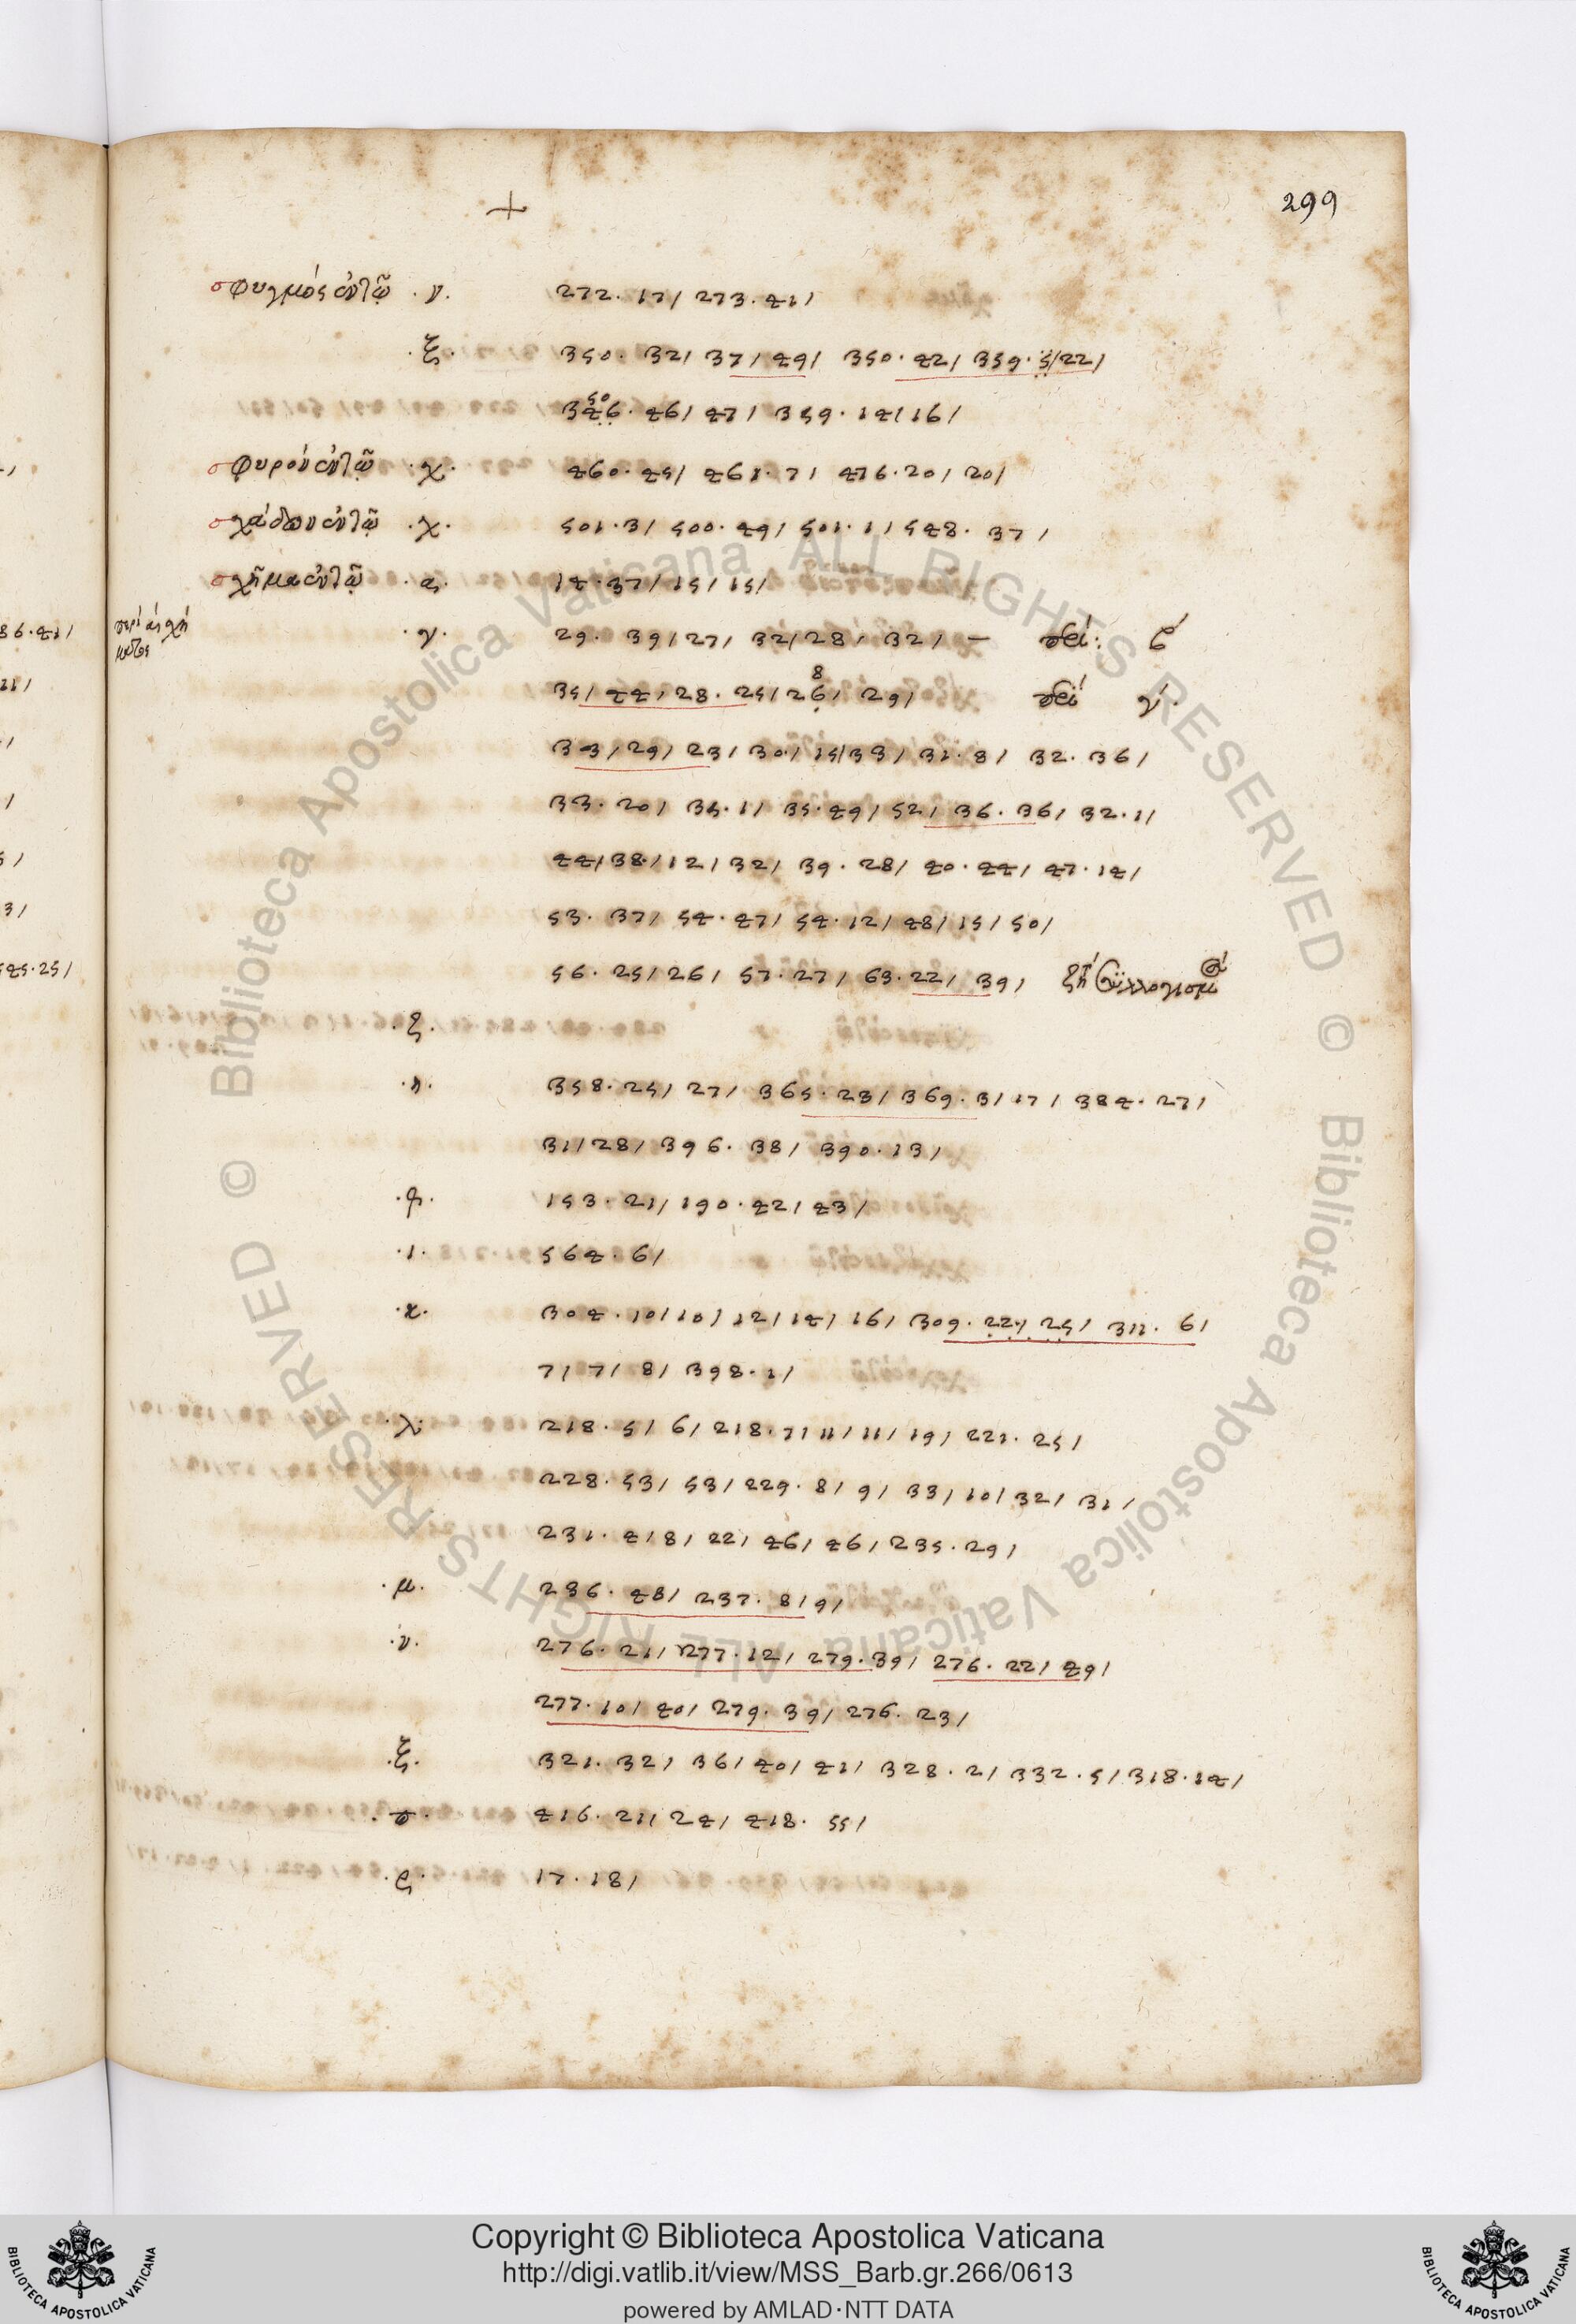 299
σφυγμὸς ἐν τῷ ·ν· 272. 17/ 273. 41/
·ξ· 350. 32/ 37/ 49/ 350. 42/ 359. 5/22/
50
346. 46/ 47/ 359. 14/16/
σφυρὸν ἐν τῷ ·χ· 460. 45/ 461. 7/ 476. 20/ 20/
σχάδων ἐν τῷ ·χ· 501. 3/ 500. 49/ 501. 1/ 548. 37/
σχῆμα ἐν τῷ ·α· 14. 37/ 15/ 15/
·γ· 29. 39/27/ 32/28/ 32/ —
35/ 44/ 28. 25/ 26/ 29/ γ́·
8
33/ 29/ 23/ 30/ 15/33/ 31. 8/ 32. 36/
33. 20/ 35. 1/ 35. 49/ 52/ 36. 36/ 32. 1/
44/38/12/32/ 39. 28/ 40. 44/ 47. 14/
53. 37/ 54. 47/ 54. 12/ 48/15/ 50/
56. 25/26/ 57. 27/ 63. 22/ 39/
·ζ·
·η· 358. 25/ 27/ 365. 23/ 369. 3/17/ 384. 27/
31/28/ 396. 38/ 390. 13/
153. 21/ 190. 42/ 43/
·ι· 564. 6/
·κ· 304. 10/10/ 12/14/ 16/ 309. 22/ 25/ 311. 6/
7/ 7/ 8/ 398. 1/
·λ· 218. 5/ 6/ 218. 7/ 11/ 11/ 19/ 221. 25/
228. 53/ 53/ 229. 8/ 9/ 33/ 10/ 32/ 31/
231. 4/8/ 22/ 46/ 46/ 235. 29/
·μ· 236. 48/ 237. 8/9/
·ν· 276. 21/ 277. 12/ 279. 39/ 276. 22/ 49/
277. 10/ 40/ 279. 39/ 276. 23/
·ξ· 321. 32/ 36/ 40/ 41/ 328. 2/ 332. 5/ 318. 14/
416. 21/ 24/ 418. 55/
·ρ· 17. 18/
86. 41/
11/
3/
545. 25/
Copyright © Biblioteca Apostolica Vaticana
http://digi.vatlib.it/view/MSS_Barb.gr.266/0613
powered by AMLAD·NTT DATA
BIBLIOTECA APOSTOLICA VATICANA
BIBLIOTECA APOSTOLICA VATICANA
© Biblioteca Apostolica Vaticana ALL RIGHTS RESERVED
© Biblioteca Apostolica Vaticana ALL RIGHTS RESERVED